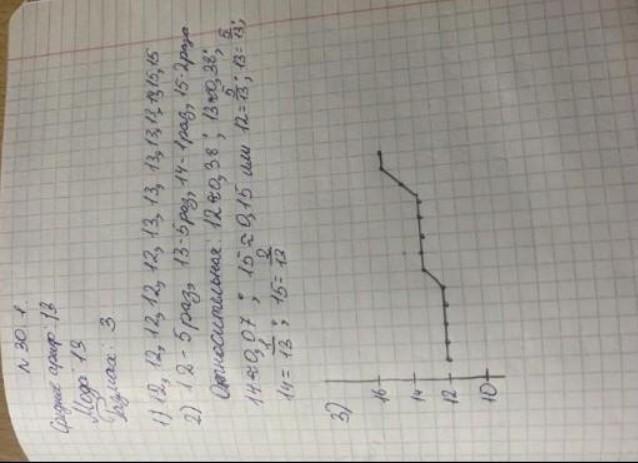 N 30. 1.
Среднее ариф: 13
Мода: 13
Размах: 3
1) 12, 12, 12, 12, 12, 13, 13, 13, 13, 13, 15, 15
2) 12 - 5 раз, 13 - 5 раз, 14 - 1 раз, 15 - 2 раза
Относительная: 12 ≈ 0,38; 13 ≈ 0,38;
14 ≈ 0,07; 15 ≈ 0,15 или 12 = 5/13; 13 = 5/13;
14 = 1/13; 15 = 2/13
3)
16
14
12
10